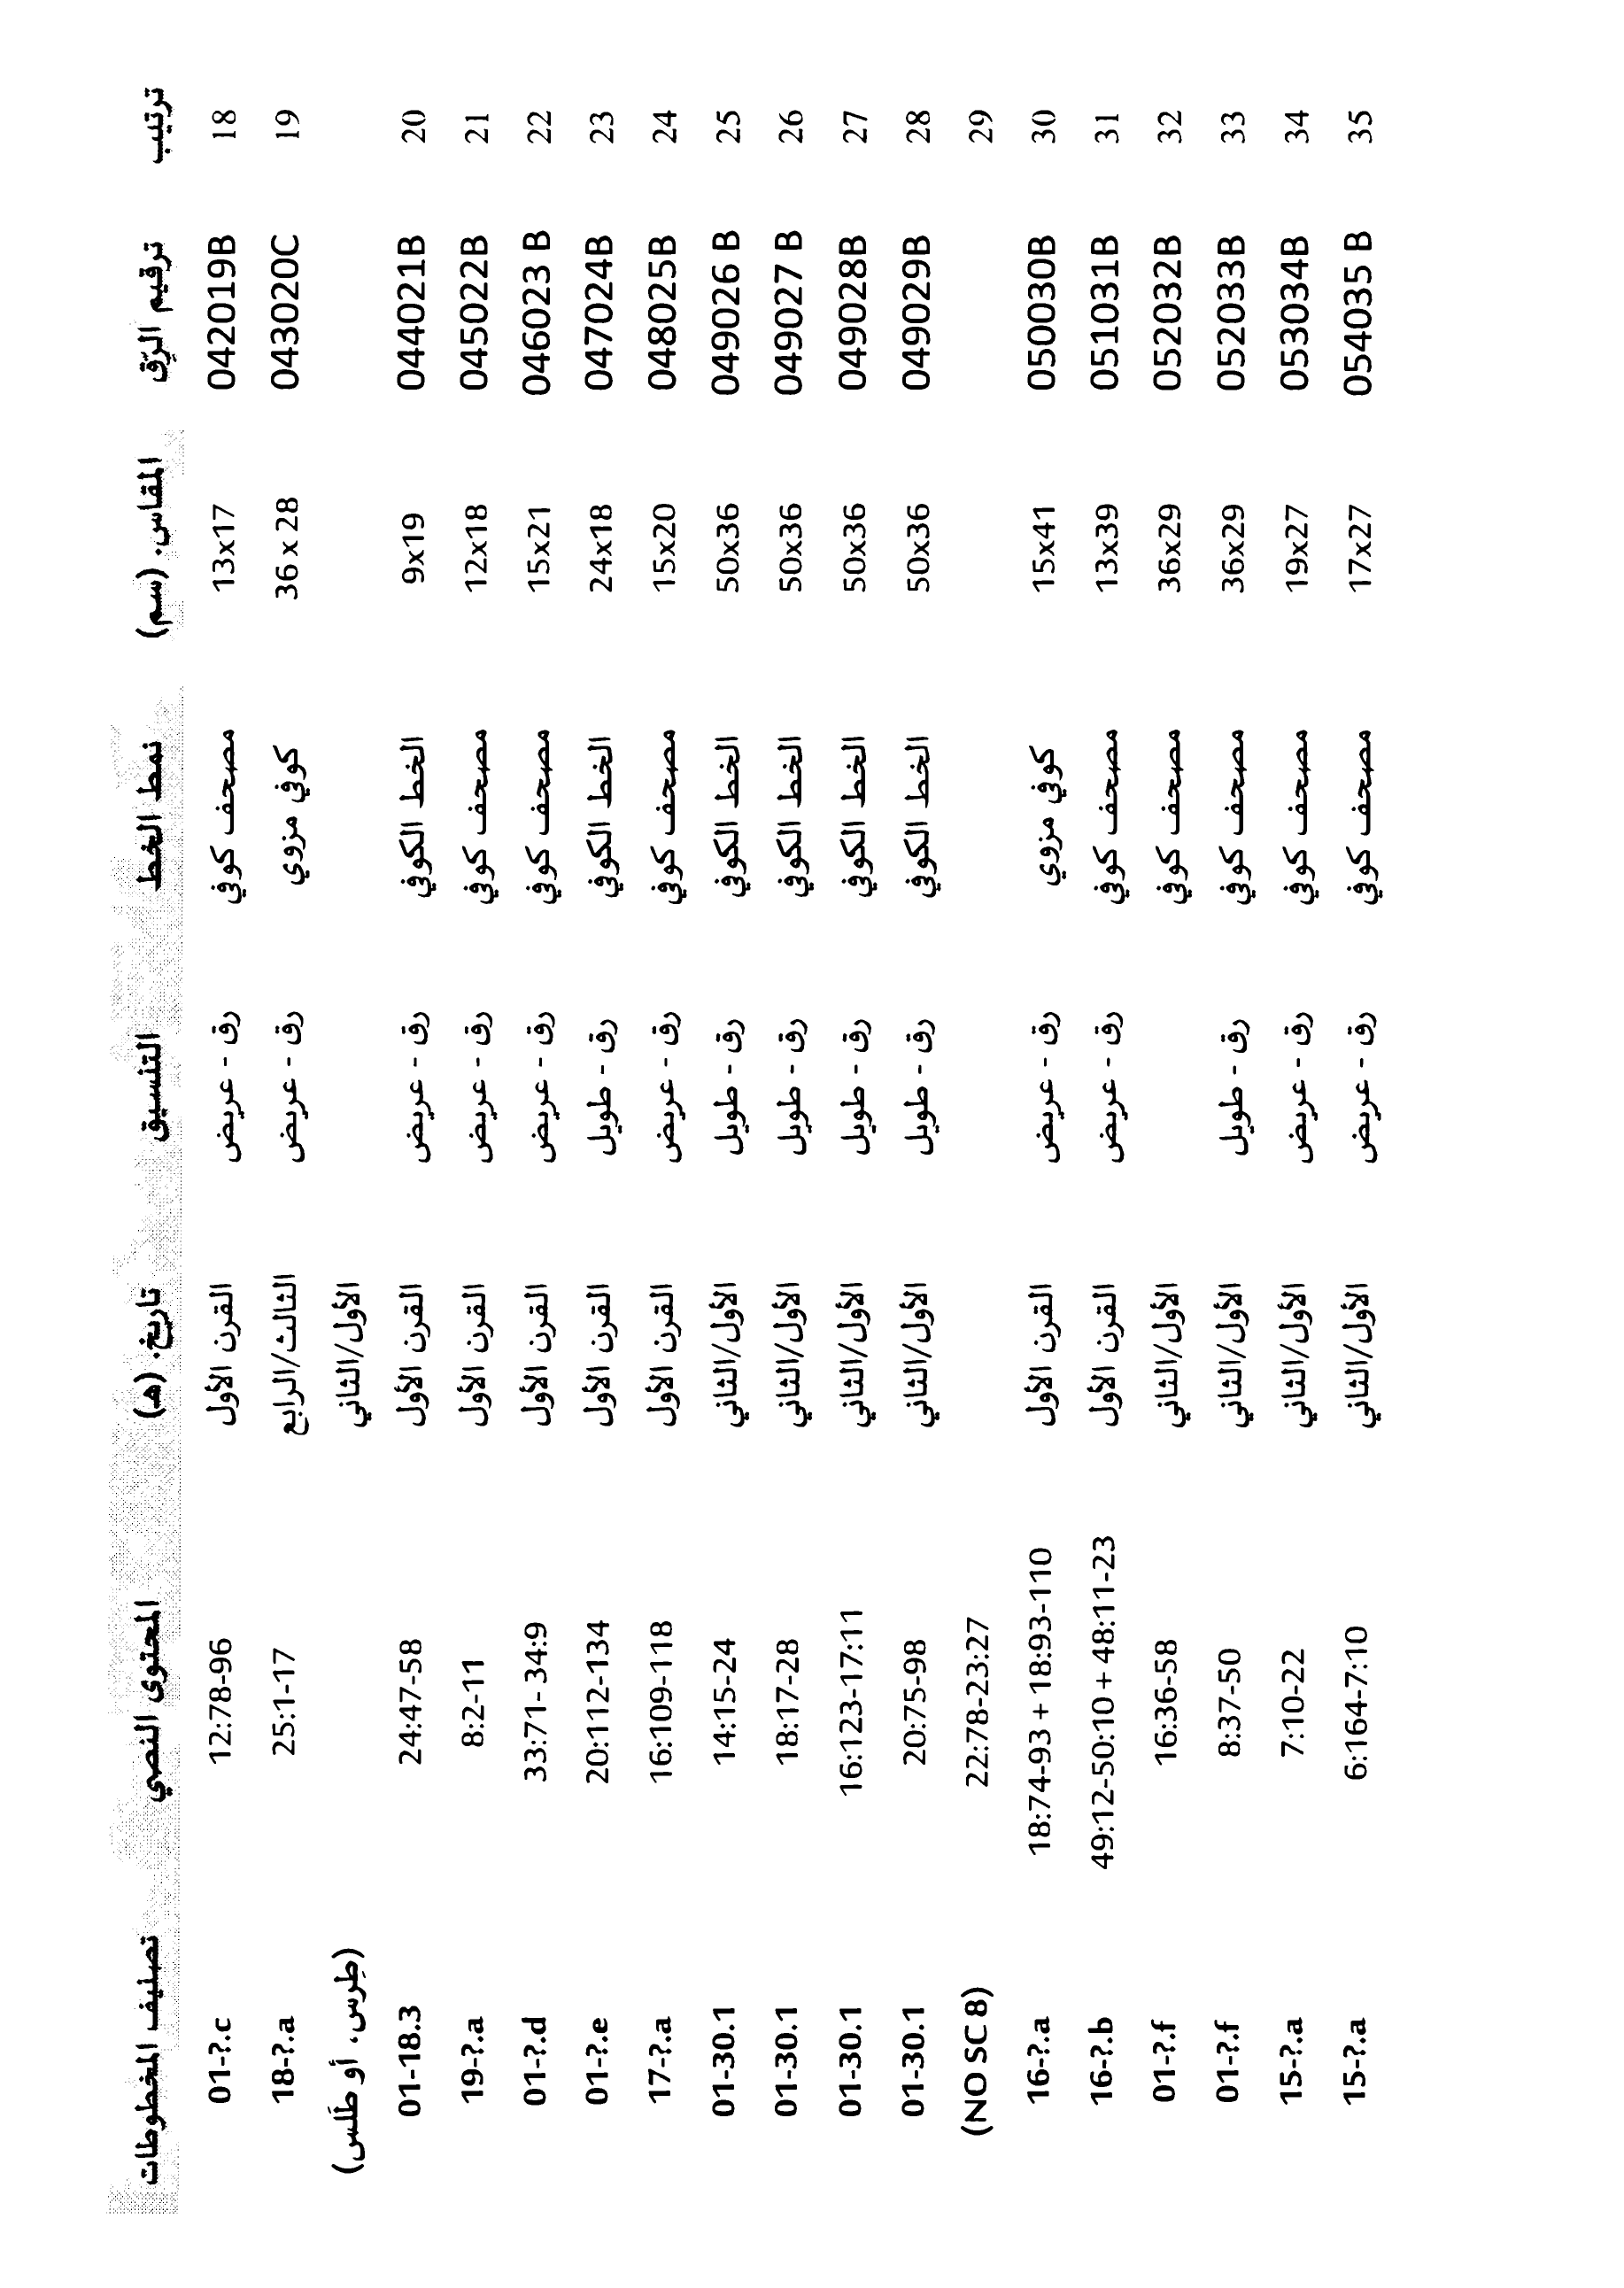 ترتيب ترقيم الرِّق المقاس. (سم) نمط الخط التنسيق تاريخ. (هـ) المحتوى النصي تصنيف المخطوطات
18 042019B 13x17 مصحف كوفي رق - عريض القرن الأول 12:78-96 01-?.c
19 043020C 36 x 28 كوفي مزوي رق - عريض الثالث/الرابع 25:1-17 18-?.a
الأول/الثاني (طِرس، أو طَلس)
20 044021B 9x19 الخط الكوفي رق - عريض القرن الأول 24:47-58 01-18.3
21 045022B 12x18 مصحف كوفي رق - عريض القرن الأول 8:2-11 19-?.a
22 046023 B 15x21 مصحف كوفي رق - عريض القرن الأول 33:71- 34:9 01-?.d
23 047024B 24x18 الخط الكوفي رق - طويل القرن الأول 20:112-134 01-?.e
24 048025B 15x20 مصحف كوفي رق - عريض القرن الأول 16:109-118 17-?.a
25 049026 B 50x36 الخط الكوفي رق - طويل الأول/الثاني 14:15-24 01-30.1
26 049027 B 50x36 الخط الكوفي رق - طويل الأول/الثاني 18:17-28 01-30.1
27 049028B 50x36 الخط الكوفي رق - طويل الأول/الثاني 16:123-17:11 01-30.1
28 049029B 50x36 الخط الكوفي رق - طويل الأول/الثاني 20:75-98 01-30.1
29 22:78-23:27 (NO SC 8)
30 050030B 15x41 كوفي مزوي رق - عريض القرن الأول 18:74-93 + 18:93-110 16-?.a
31 051031B 13x39 مصحف كوفي رق - عريض القرن الأول 49:12-50:10 + 48:11-23 16-?.b
32 052032B 36x29 مصحف كوفي الأول/الثاني 16:36-58 01-?.f
33 052033B 36x29 مصحف كوفي رق - طويل الأول/الثاني 8:37-50 01-?.f
34 053034B 19x27 مصحف كوفي رق - عريض الأول/الثاني 7:10-22 15-?.a
35 054035 B 17x27 مصحف كوفي رق - عريض الأول/الثاني 6:164-7:10 15-?.a